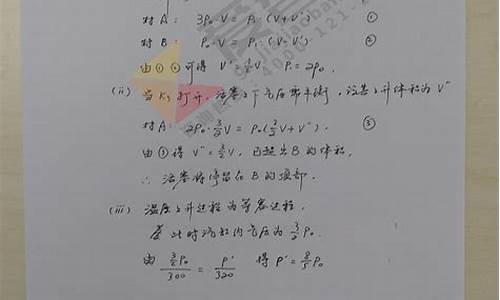 对A: 3P₀·V = P₁(V+V') ①
对B: P₀·V = P₁(V-V') ②
由①②可得 V'=½V P₁=2P₀.
(ii) 当K₃打开, 活塞上下气压带平衡, 设其上升体积为V''
对A: 2P₀·3/2V = P₀(3/2V+V''). ③
由③得 V''=3/2V, 已超出B的体积,
∴ 活塞将停留在B的顶部.
(iii) 温度上升过程为等容过程.
此时汽缸内气压为 3/2P₀.
由 (3/2P₀)/300 = P'/320 得 P'=8/5P₀